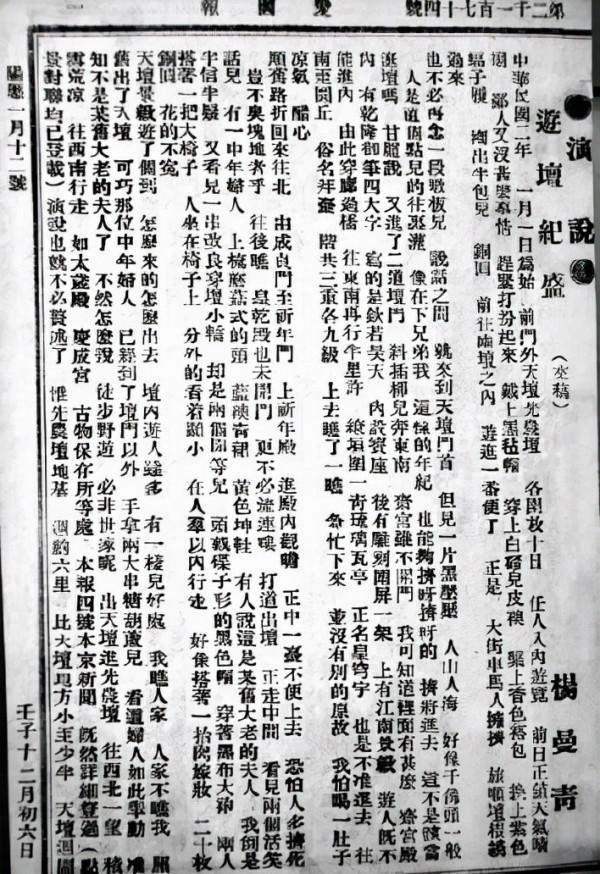 第二千一百七十四號 愛國報
演說
遊壇紀盛 (來稿) 楊曼青
中華民國二年 一月一日為始 前門外天壇先農壇 各開放十日 任人入內遊覽 前日正值天氣晴
明 鄙人又沒甚麼事情 趕緊打扮起來 戴上黑毡帽 穿上白兒皮襖 繫上香色褡包 換上紫色
蝠子履 出半包兒 銅圓 前往兩壇之內 遊逛一番便了 正是 大街車馬人擁擠
過來
也不必再念一段數板兒 說話之間 就來到天壇門首 但見一片黑壓壓 人山人海 好像千佛頭一般
人是直個點兒的往裏灌 像在下兄弟我 這樣的年紀 也能夠擠呀擠呀的 擠將進去 這不是
逛壇嗎 甘脆說 又進了二道壇門 斜插柳兒奔東南 齋宮雖不開門 我可知道裡面有甚麼 齋宮殿
內 有乾隆御筆四大字 寫的是欽若昊天 內設寶座 後有雕刻圍屏一架 上有江南景緻 遊人既不
能進內 由此穿廊過橋 往東南再行半里許 繚垣圍一青琉璃瓦亭 正名皇穹宇 也是不准進去 往
南至圜丘 俗名拜臺 階共三重各九級 上去瞧了一瞧 急忙下來 並沒有別的原故 我怕喝一肚子
涼氣 醋心
順舊路折回來往北 由成貞門至祈年門 上祈年殿 進殿內觀瞻 正中一臺不便上去 恐怕人多擠死
豈不臭塊地者乎 往後瞧 皇乾殿也未開門 更不必流連嘍 打道出壇 正走中間 看見兩個活笑
話兒 有一中年婦人 上梳式的頭 藍襖青裙 黃色坤鞋 有人說這是某舊大老的夫人 我倒是
半信半疑 又看見一串改良穿壇小轎 却是兩個等兒 頭戴碟子形的黑色帽 穿著羅布大褂 兩人
搭著一把大椅子 人坐在椅子上 分外的看着顯小 在人羣以內行走 好像搭著一抬闊嫁妝 二十枚
銅圓 花的不寃
天壇景緻遊了個到 怎麼來的怎麼出去 壇內遊人雖多 有一樣兒好處 我瞧人家 人家不瞧我
舊出了天壇 可巧那位中年婦人 已到了壇門以外 手拿兩大串糖胡蘆兒 看這婦人如此舉動 准
知不是某舊大老的夫人了 不然怎麼說 徒步野遊 必非世家呢 出天壇進先農壇 往西北一望 積
雪荒涼 往西南行走 如太歲殿 慶成宮 古物保存所等處 本報四號本京新聞 既然詳細登過(點
景對聯均已登載)演說也就不必贅述了 惟先農壇地基 週約六里 比天壇地方小至少半 天壇週圍
陽曆一月十二號 壬子十二月初六日